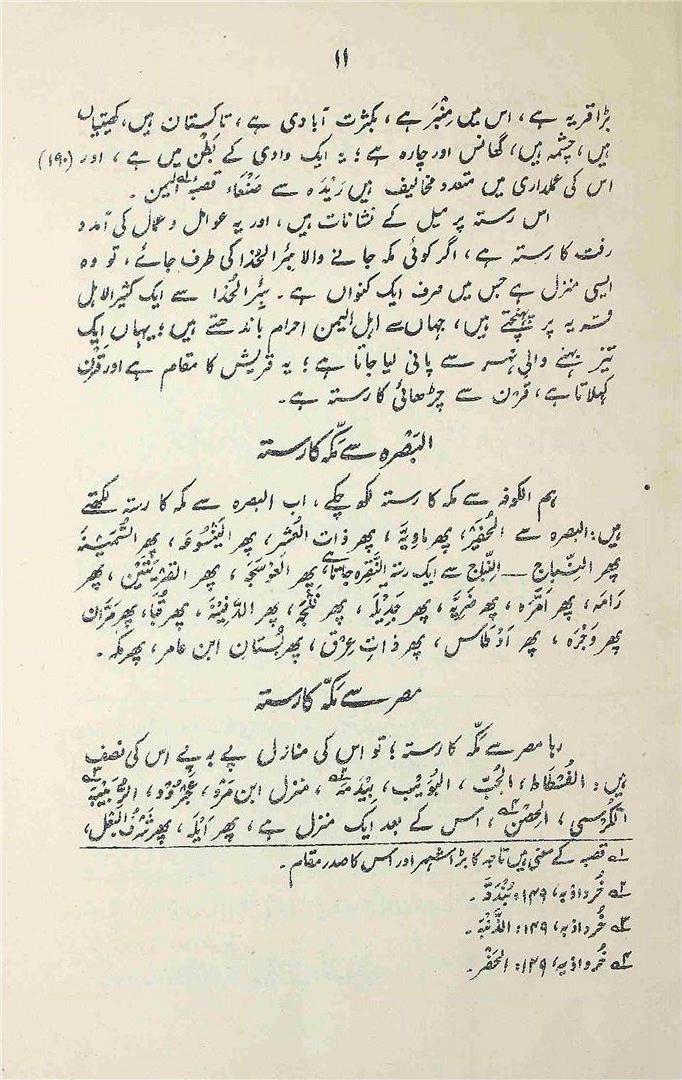 ۱۱
بڑا قریہ ہے، اس میں مِنْبَر ہے، بکثرت آبادی ہے، تاکستان ہیں، کھیتیاں
ہیں، چشمہ ہیں، گھانس اور چارہ ہے؛ یہ ایک وادی کے بَطْن میں ہے، اور (۱۹۰)
اس کی عملداری میں متعدد مخالیف ہیں رَیْدَہ سے صَنْعَاء قصبۂ لہ الیمن۔
اس رستہ پر میل کے نشانات ہیں، اور یہ عوامل و عمال کی آمد و
رفت کا رستہ ہے، اگر کوئی مکہ جانے والا بئر الحذا کی طرف جائے، تو وہ
ایسی منزل ہے جس میں صرف ایک کنواں ہے۔ بِئر الحُذا سے ایک کثیر الاہل
قریہ پر پہنچتے ہیں، جہاں سے اہل الیمن احرام باندھتے ہیں؛ یہاں ایک
تیز بہنے والی نہر سے پانی لیا جاتا ہے؛ یہ قریش کا مقام ہے اور قَرْن
کہلاتا ہے، قرن سے چڑھائی کا رستہ ہے۔
البَصْرہ سے مکّہ کا رستہ
ہم الکوفہ سے مکہ کا رستہ لکھ چکے، اب البصرہ سے مکہ کا رستہ لکھتے
ہیں: البصرہ سے الحُفَیْر، پھر ماوِیَّۃ، پھر ذات العُشَر، پھر الیَنْسُوعَہ، پھر السُّمَیْنَۃ
پھر النِّباج — النِّباج سے ایک رستہ النَّقِرہ جاتا ہے، پھر العَوْسَجَہ، پھر القَرْیَتَیْن، پھر
رَامَہ، پھر اَمَّرَہ، پھر ضَرِیَّہ، پھر جَدِیْلَہ، پھر فَلْجَہ، پھر الدَّفِیْنَہ، پھر قُبَا، پھر مَرَّان
پھر وَجْرَہ، پھر اَوْطَاس، پھر ذاتِ عِرْق، پھر بُستانِ ابن عامر، پھر مکہ۔
مصر سے مکّہ کا رستہ
رہا مصر سے مکّہ کا رستہ؛ تو اس کی منازل پے بہ پے اس کی نصف
ہیں: الفُسْطَاط، الجُبّ، البُوَیْب، بَیْدَمَہ ۲، منزل ابن مَرْو، عَجْرُوْد، الرُّبَیْبِیَّہ ۳
الکُرْسِی، الحِصْن ۴، اس کے بعد ایک منزل ہے، پھر اَیْلَہ، پھر شَرْفُ البَغْل،
۱ قصبہ کے معنی ہیں ناحیہ کا بڑا شہر اور اس کا صدر مقام۔
۲ خُرداذبہ، ۱۴۹:
۳ خُرداذبہ، ۱۴۹:
۴ خُرداذبہ، ۱۴۹: الحَفْر۔